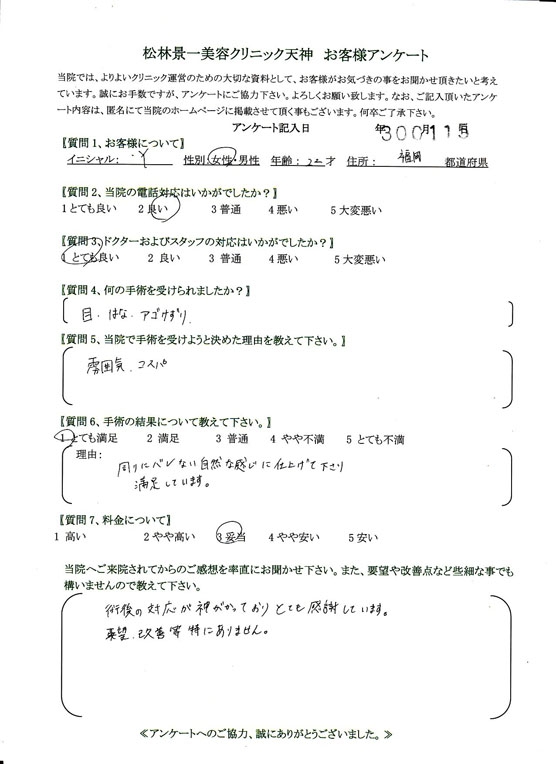 松林景一美容クリニック天神 お客様アンケート
当院では、よりよいクリニック運営のための大切な資料として、お客様がお気づきの事をお聞かせ頂きたいと考え
ています。誠にお手数ですが、アンケートにご協力下さい。よろしくお願い致します。なお、ご記入頂いたアンケ
ート内容は、匿名にて当院のホームページに掲載させて頂く事もございます。何卒ご了承下さい。
アンケート記入日
〖質問1、お客様について〗
イニシャル: Y 性別 女性・男性 年齢: 才 住所: 福岡 都道府県
〖質問2、当院の電話対応はいかがでしたか?〗
1とても良い 2良い 3普通 4悪い 5大変悪い
〖質問3、ドクターおよびスタッフの対応はいかがでしたか?〗
1とても良い 2良い 3普通 4悪い 5大変悪い
〖質問4、何の手術を受けられましたか?〗
目.はな.アゴけずり.
〖質問5、当院で手術を受けようと決めた理由を教えて下さい。〗
雰囲気.コスパ
〖質問6、手術の結果について教えて下さい。〗
1とても満足 2満足 3普通 4やや不満 5とても不満
理由:
周りにバレない自然な感じに仕上げて下さり
満足しています。
〖質問7、料金について〗
1高い 2やや高い 3妥当 4やや安い 5安い
当院へご来院されてからのご感想を率直にお聞かせ下さい。また、要望や改善点など些細な事でも
構いませんので教えて下さい。
術後の対応が神がかっておりとても感謝しています。
要望.改善等特にありません。
≪アンケートへのご協力、誠にありがとうございました。≫